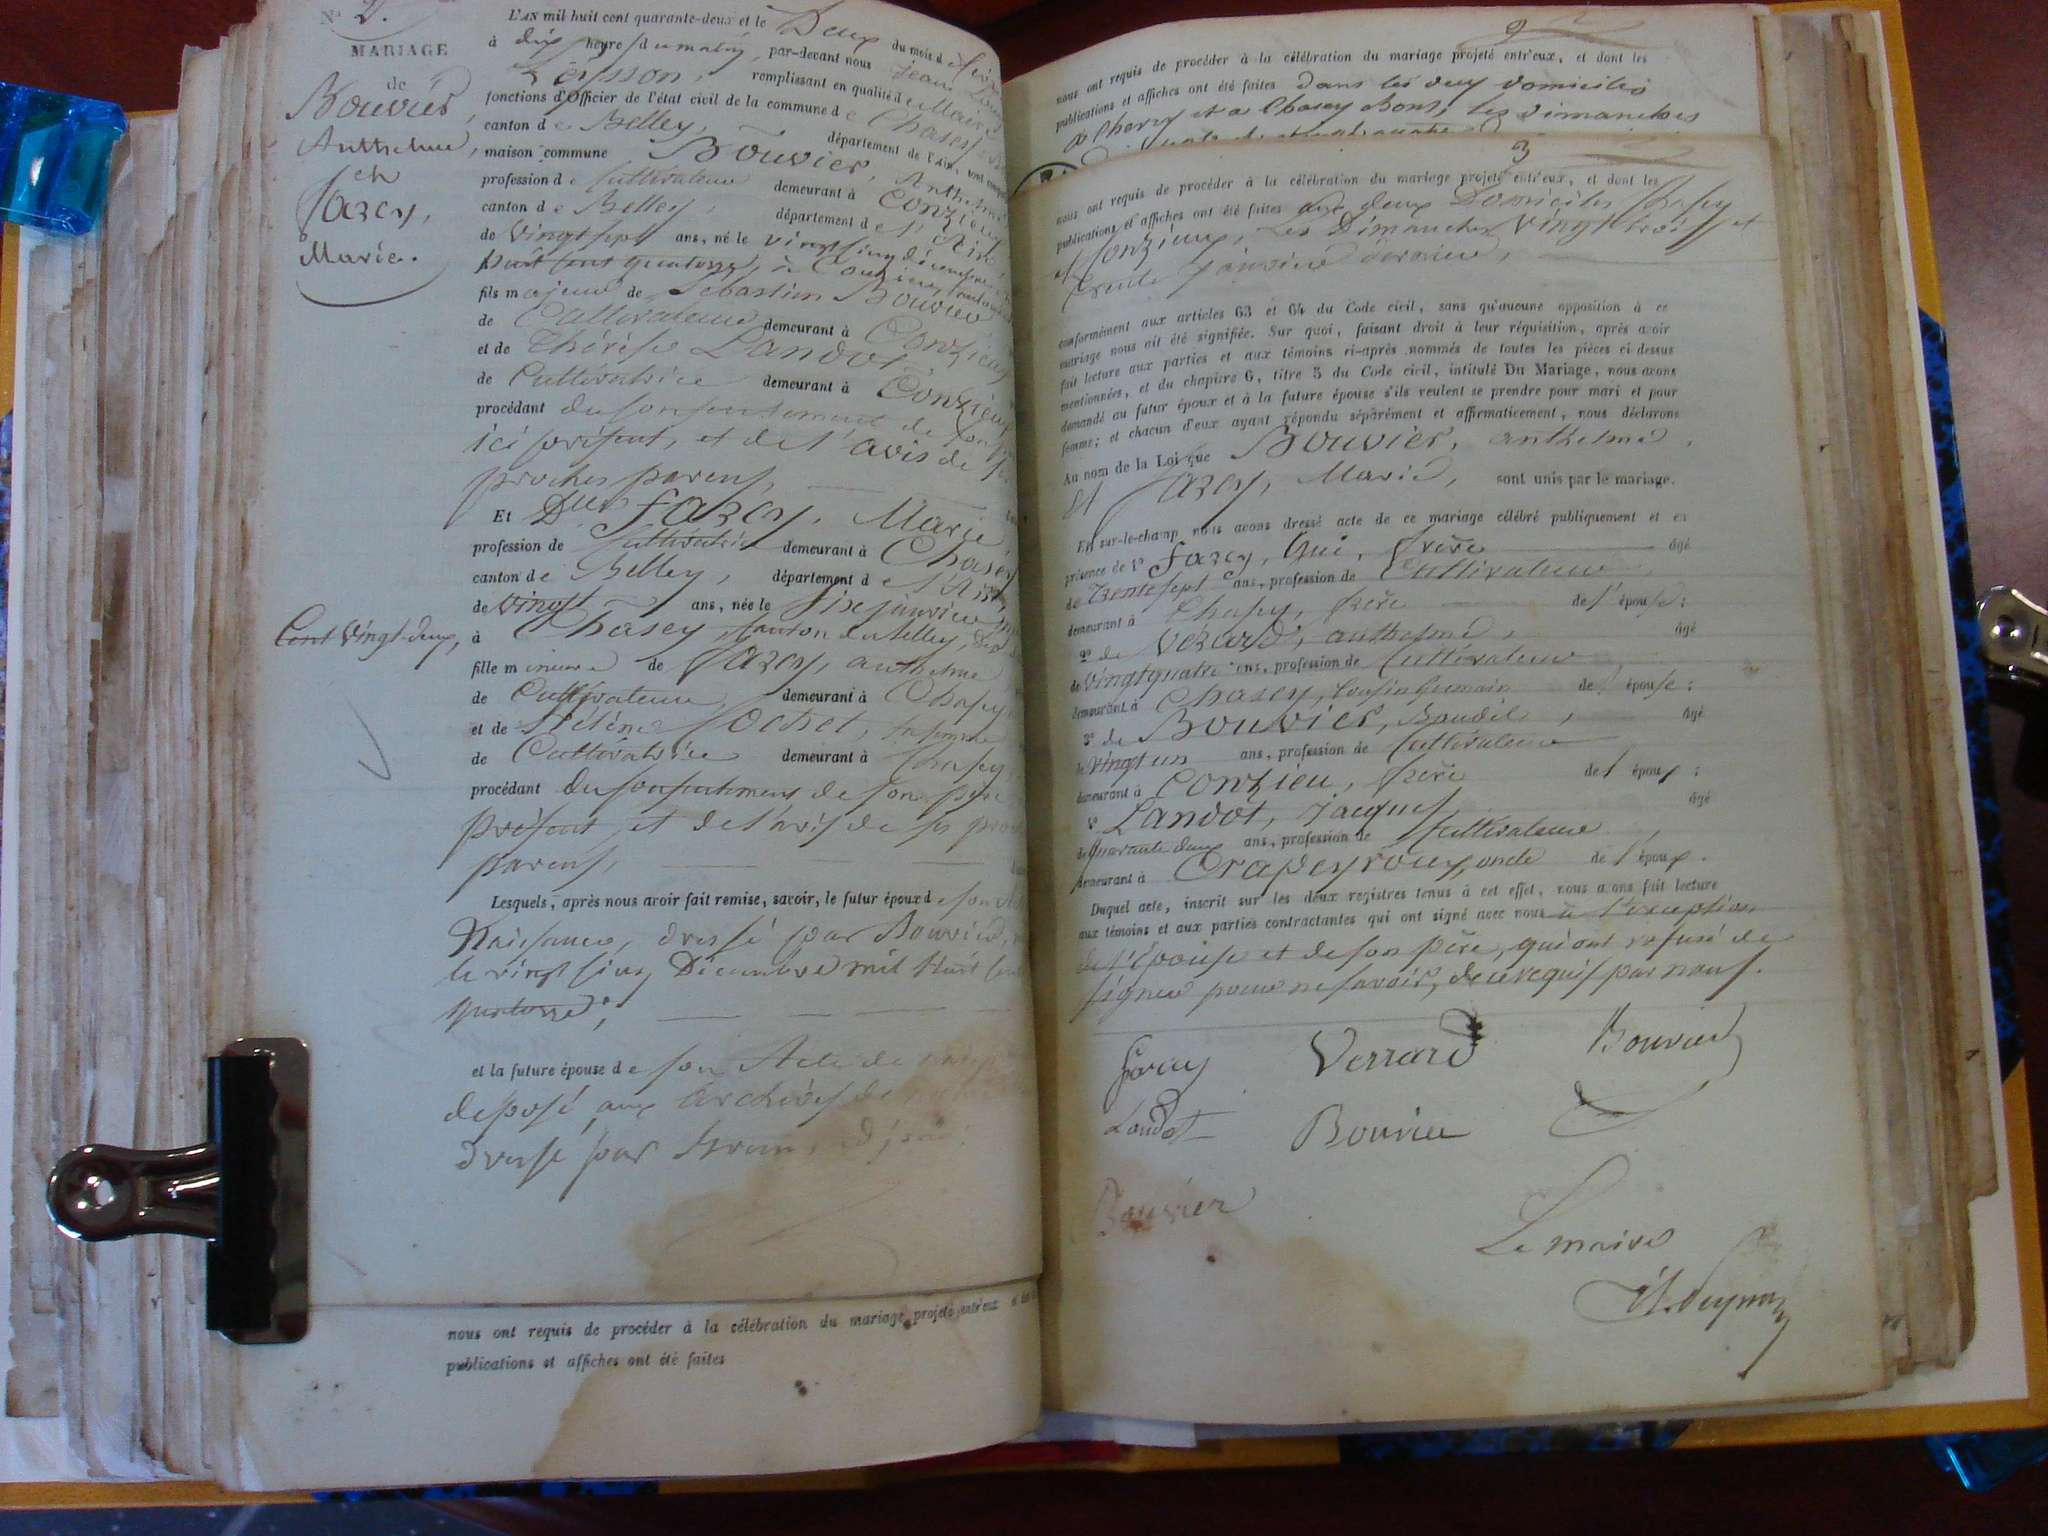 N° 2.
MARIAGE
de
Bouvier,
Anthelme,
et
Farcy,
Marie.
Cent Vingt-deux,
L'AN mil huit cent quarante-deux et le Deux du mois d
à dix heures du matin, par-devant nous Jean
remplissant en qualité de Maire
fonctions d'Officier de l'état civil de la commune de Chasey
canton de Belley, département de l'Ain, ont
maison commune Bouvier, Anthelme
profession de Cultivateur demeurant à Conzieu
canton de Belley, département de l'Ain,
de Vingt sept ans, né le vingt cinq décembre
huit cent quatorze, à Conzieu, canton
fils majeur de Sébastien Bouvier
de Cultivateur demeurant à Conzieu
et de Thérèse Landot
de Cultivatrice demeurant à Conzieu
procédant du consentement de son
ici présent, et de l'avis de
proches parens,
Et Dlle Farcy, Marie
profession de Cultivatrice demeurant à Chasey
canton de Belley, département de l'Ain,
de Vingt ans, née le six janvier
à Chasey, canton de Belley,
fille mineure de Farcy, anthelme
de Cultivateur demeurant à Chasey
et de Hélène sa femme
de Cultivatrice demeurant à Chasey
procédant du consentement de son père
présent, et de l'avis de ses
parens,
Lesquels, après nous avoir fait remise, savoir, le futur époux de son
Naissance, dressé par Bouvier,
le vingt cinq Décembre mil huit cent
quatorze;
et la future épouse de son Acte de
déposé aux archives de
dressé par
nous ont requis de procéder à la célébration du mariage projeté entr'eux
publications et affiches ont été faites
2
nous ont requis de procéder à la célébration du mariage projeté entr'eux, et dont les
publications et affiches ont été faites dans les deux domiciles
a Cherry et a Chasey Bons, les Dimanches
3
nous ont requis de procéder à la célébration du mariage projeté entr'eux, et dont les
publications et affiches ont été faites aux deux Domiciles Chasey
et Conzieu, les Dimanches Vingt trois et
trente janvier dernier,
conformément aux articles 63 et 64 du Code civil, sans qu'aucune opposition à ce
mariage nous ait été signifiée. Sur quoi, faisant droit à leur réquisition, après avoir
fait lecture aux parties et aux témoins ci-après nommés de toutes les pièces ci-dessus
mentionnées, et du chapitre 6, titre 5 du Code civil, intitulé Du Mariage, nous avons
demandé au futur époux et à la future épouse s'ils veulent se prendre pour mari et pour
femme; et chacun d'eux ayant répondu séparément et affirmativement, nous déclarons
Au nom de la Loi que Bouvier, anthelme,
Et Farcy, Marie, sont unis par le mariage.
Et sur-le-champ nous avons dressé acte de ce mariage célébré publiquement et en
présence de 1° Farcy, Gui, frère âgé
de Trente sept ans, profession de Cultivateur,
demeurant à Chasey, frère de l'épouse;
2° de Vezard, anthelme, âgé
de Vingt quatre ans, profession de Cultivateur
demeurant à Chasey, Cousin Germain de l'épouse;
3° de Bouvier, Baudile, âgé
de Vingt un ans, profession de Cultivateur
demeurant à Conzieu, frère de l'époux;
4° Landot, Jacques, âgé
de Quarante deux ans, profession de Cultivateur,
demeurant à Crapeyroux, oncle de l'époux.
Duquel acte, inscrit sur les deux registres tenus à cet effet, nous avons fait lecture
aux témoins et aux parties contractantes qui ont signé avec nous à l'exception
de l'épouse et de son père, qui ont refusé de
signer pour ne savoir, de ce requis par nous.
Farcy Verrard Bouvier
Landot Bouvier
Bouvier
Le maire